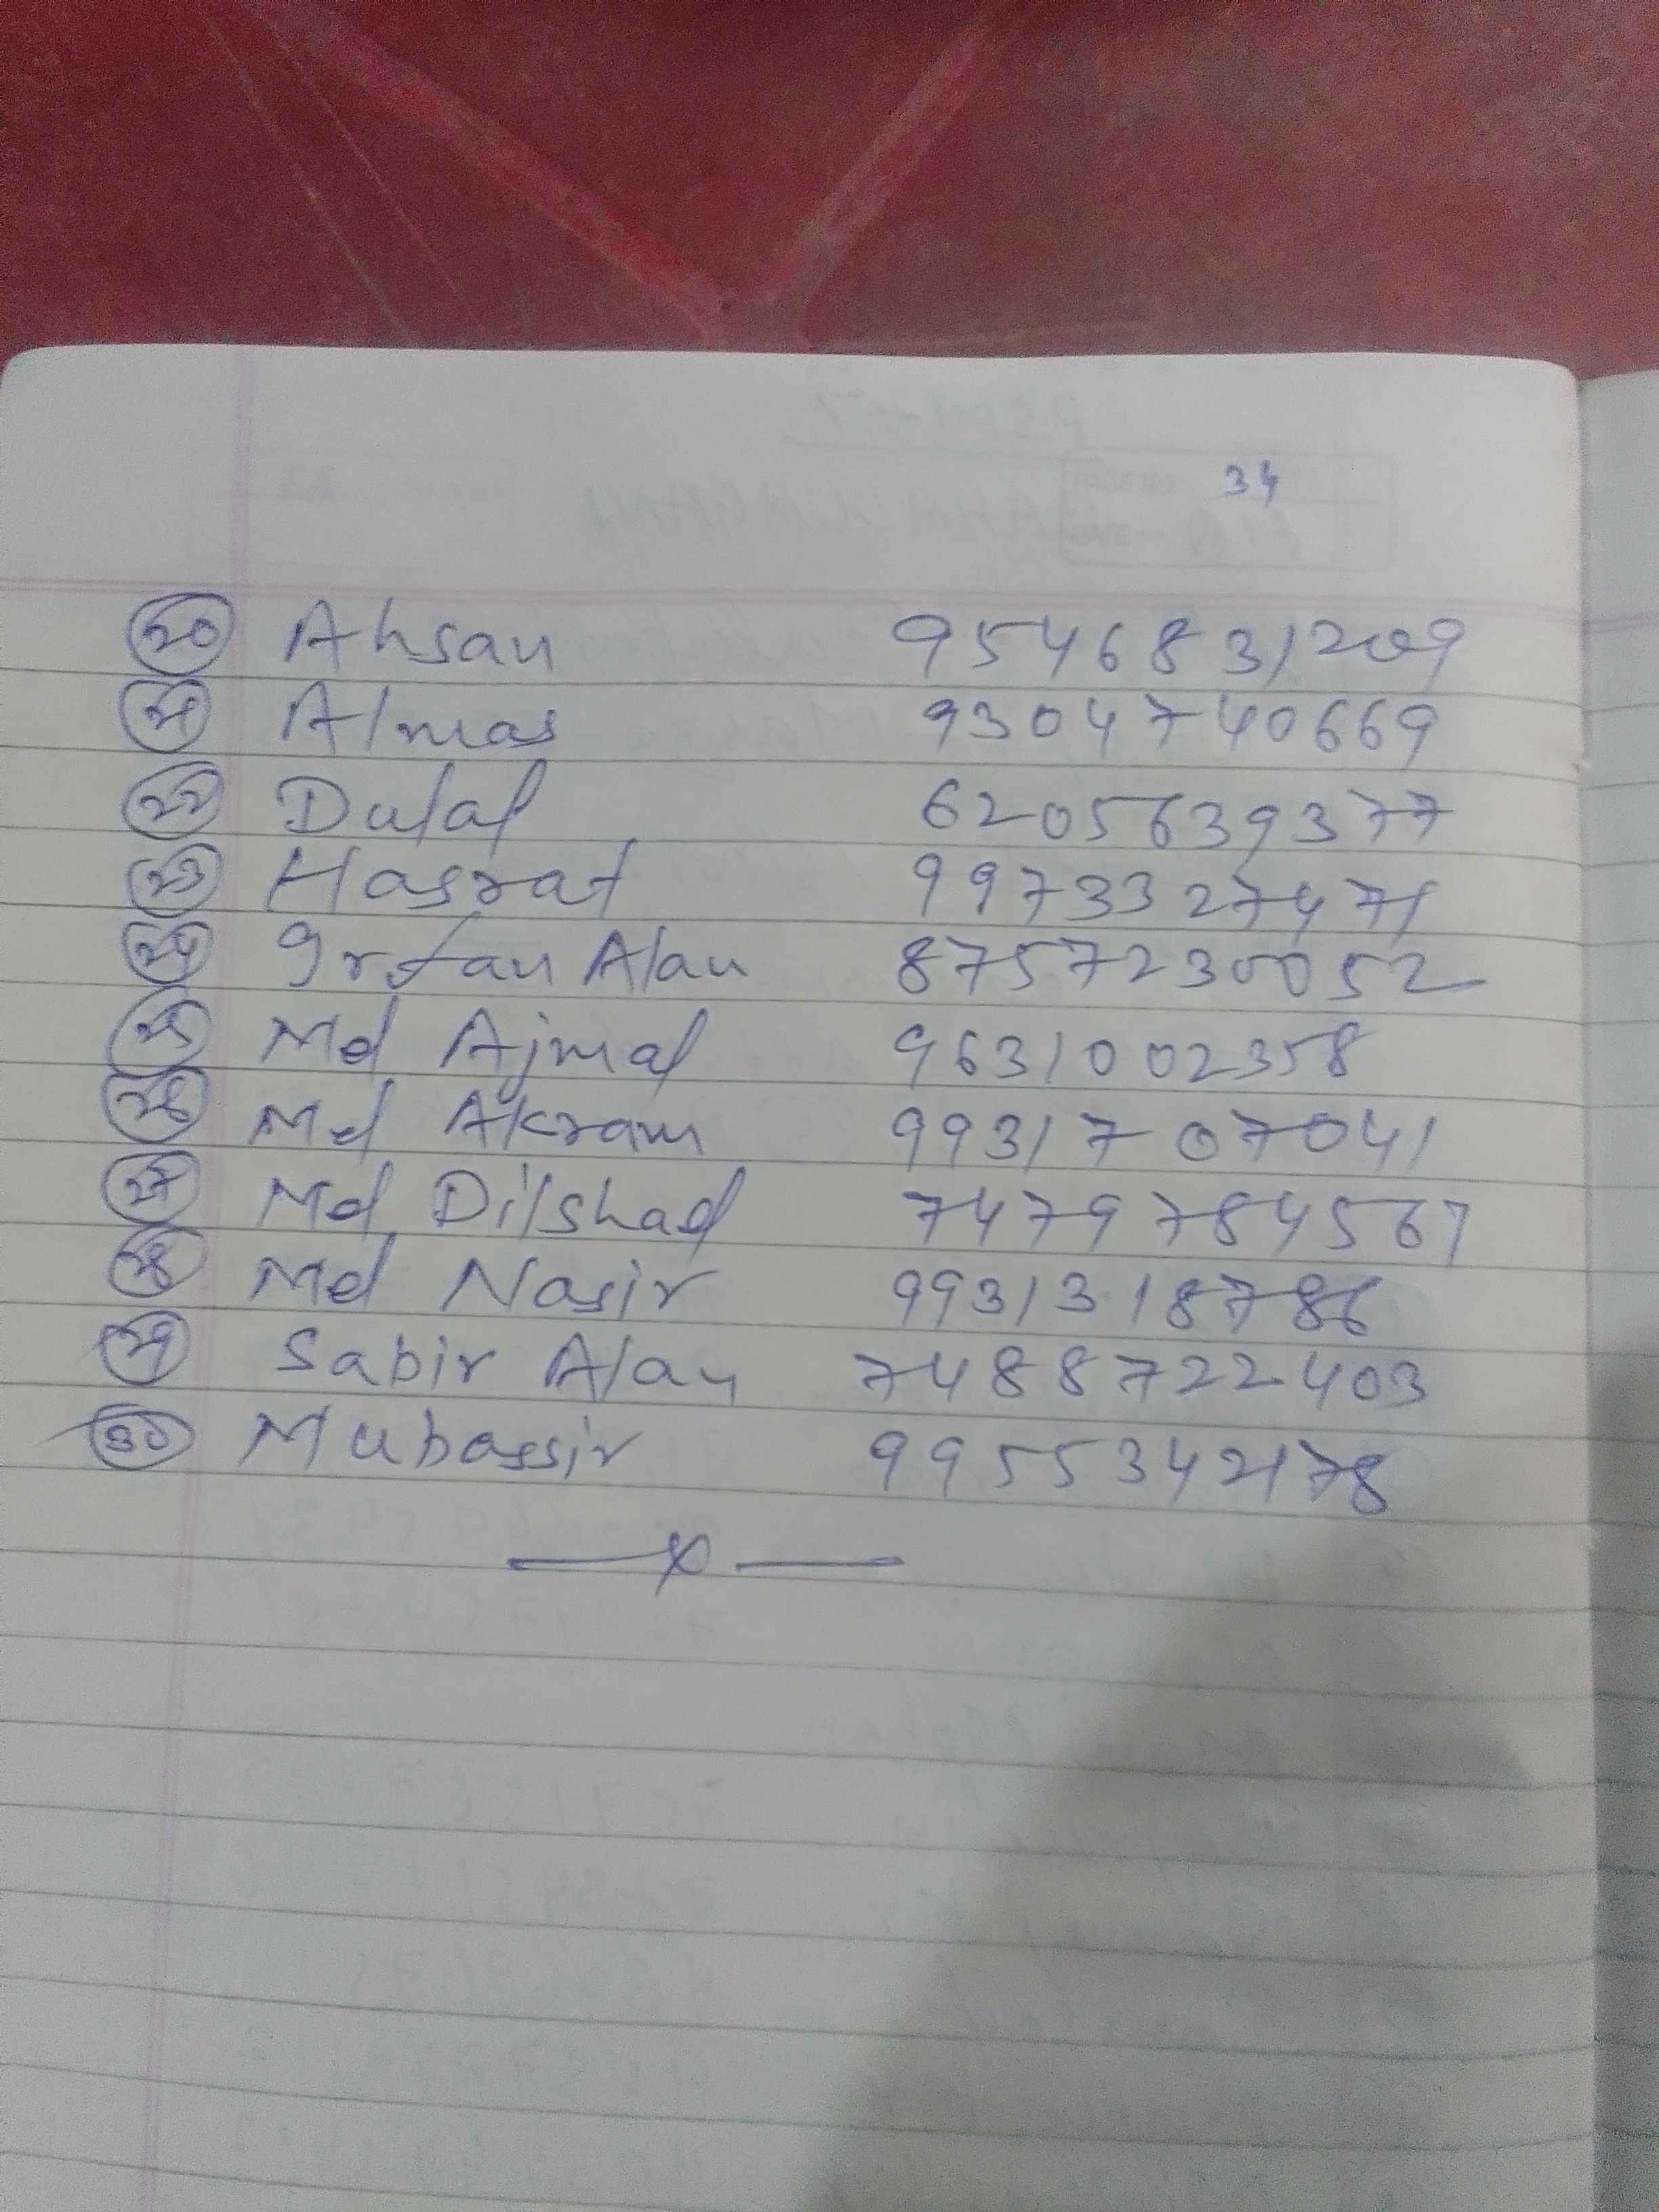 34
20 Ahsan 9546831209
21 Almas 9304740669
22 Dulal 6205639377
23 Hasrat 9973327471
24 Irfan Alan 8757230052
25 Md Ajmal 9631002358
26 Md Akram 9931707041
27 Md Dilshad 7479784567
28 Md Nasir 9931318786
29 Sabir Alan 7488722403
30 Mubassir 9955342178
— x —